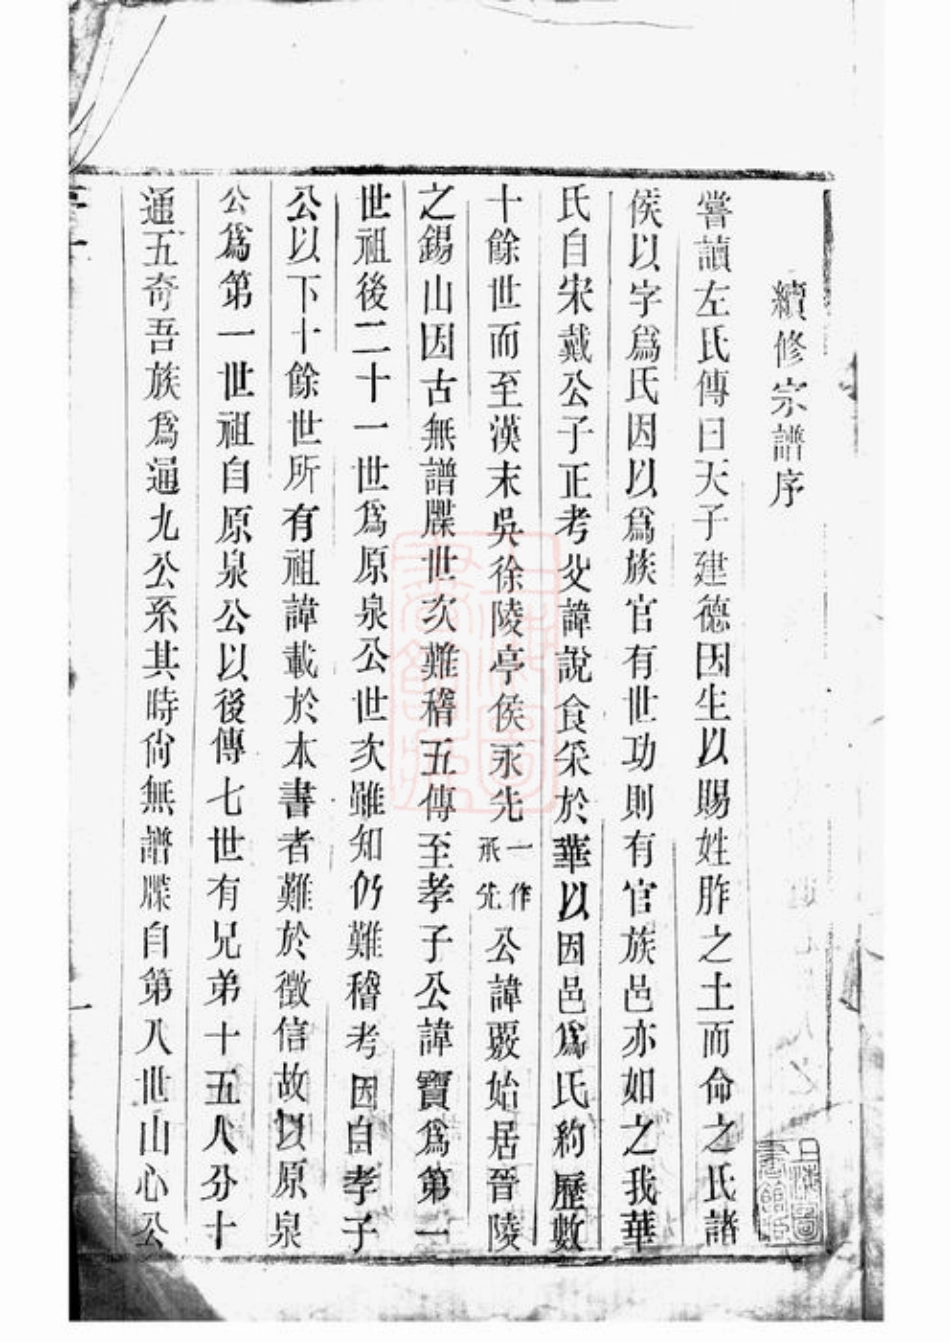 續修宗譜序
嘗讀左氏傳曰天子建德因生以賜姓胙之土而命之氏諸
侯以字爲氏因以爲族官有世功則有官族邑亦如之我華
氏自宋戴公子正考父諱說食采於華以因邑爲氏約歷數
十餘世而至漢末吳徐陵亭侯永先一作承先公諱覈始居晉陵
之錫山因古無譜牒世次難稽五傳至孝子公諱寶爲第一
世祖後二十一世爲原泉公世次雖知仍難稽考因自孝子
公以下十餘世所有祖諱載於本書者難於徵信故以原泉
公爲第一世祖自原泉公以後傳七世有兄弟十五人分十
通五奇吾族爲通九公系其時尙無譜牒自第八世山心公
上海圖書館藏